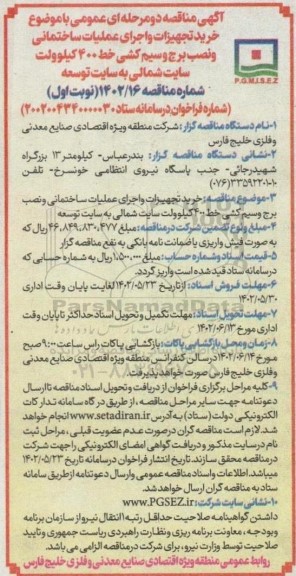 آگهی مناقصه دو مرحله ای عمومی با موضوع
خرید تجهیزات و اجرای عملیات ساختمانی
ونصب برج وسیم کشی خط ۴۰۰ کیلوولت
سایت شمالی به سایت توسعه
شماره مناقصه ۱۴۰۲/۱۶ (نوبت اول)
(شماره فراخوان در سامانه ستاد ۲۰۰۲۰۰۴۳۴۰۰۰۰۰۳۰)
P.G.M.I.S.E.Z
۱-نام دستگاه مناقصه گزار: شرکت منطقه ویژه اقتصادی صنایع معدنی
وفلزی خلیج فارس
۲-نشانی دستگاه مناقصه گزار: بندرعباس- کیلومتر ۱۳ بزرگراه
شهیدرجائی- جنب پاسگاه نیروی انتظامی خونسرخ- تلفن
(۰۷۶)۳۳۵۹۲۲۰۱-۱
۳-موضوع مناقصه: خرید تجهیزات واجرای عملیات ساختمانی ونصب
برج وسیم کشی خط ۴۰۰ کیلوولت سایت شمالی به سایت توسعه
۴-مبلغ ونوع تضمین شرکت درمناقصه: مبلغ ۴۶,۸۴۹,۸۳۰,۴۷۷ ریال، که
به صورت فیش واریزی یا ضمانت نامه بانکی به نفع مناقصه گزار
۵-قیمت اسناد وشماره حساب: مبلغ ۱,۵۰۰,۰۰۰ریال به شماره حسابی که
درسامانه ستاد قید شده است واریز گردد.
۶-مهلت فروش اسناد: ازتاریخ ۱۴۰۲/۵/۲۳ لغایت پایان وقت اداری
۱۴۰۲/۰۵/۳۰
۷-مهلت تحویل اسناد: مهلت تکمیل وتحویل اسناد حداکثر تا پایان وقت
اداری مورخ ۱۴۰۲/۰۶/۱۳
۸-زمان ومحل بازگشایی پاکات: بازگشایی پاکات راس ساعت ۹:۰۰ صبح
مورخ ۱۴۰۲/۰۶/۱۴ درسالن کنفرانس منطقه ویژه اقتصادی صنایع معدنی
وفلزی خلیج فارس صورت خواهد پذیرفت.
۹-کلیه مراحل برگزاری فراخوان از دریافت وتحویل اسناد مناقصه تا ارسال
دعوتنامه جهت سایر مراحل مناقصه، از طریق درگاه سامانه تدارکات
الکترونیکی دولت (ستاد) به آدرس www.setadiran.ir انجام خواهد
شد. لازم است مناقصه گران درصورت عدم عضویت قبلی، مراحل ثبت
نام درسایت مذکور و دریافت گواهی امضای الکترونیکی را جهت شرکت
درمناقصه محقق سازند. تاریخ انتشار فراخوان درسامانه تاریخ ۱۴۰۲/۵/۲۳
میباشد. اطلاعات واسناد مناقصه عمومی وارسال دعوتنامه ازطریق سامانه
ستاد به مناقصه گران ارسال خواهد شد.
۱۰-نشانی سایت شرکت: www.PGSEZ.ir
داشتن گواهینامه صلاحیت حداقل رتبه ۱ انتقال نیرو از سازمان برنامه
وبودجه، معاونت برنامه ریزی ونظارت راهبردی ریاست جمهوری وتایید
صلاحیت توسط وزارت نیرو، برای شرکت درمناقصه الزامی می باشد.
روابط عمومی منطقه ویژه اقتصادی صنایع معدنی وفلزی خلیج فارس